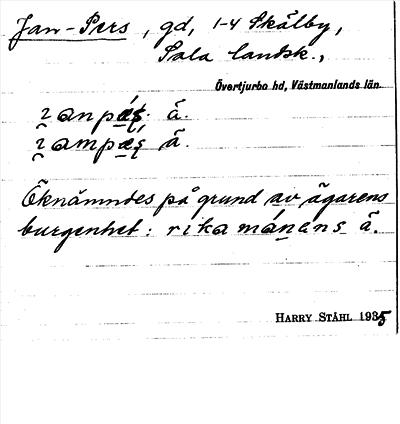 Jan-Pers, gd, 1-4 Skälby,
Sala landsk.,
Övertjurbo hd, Västmanlands län.
ä.
ä.
Öknämndes på grund av ägarens
burgenhet: rika mánens ä.
HARRY STÅHL 1935